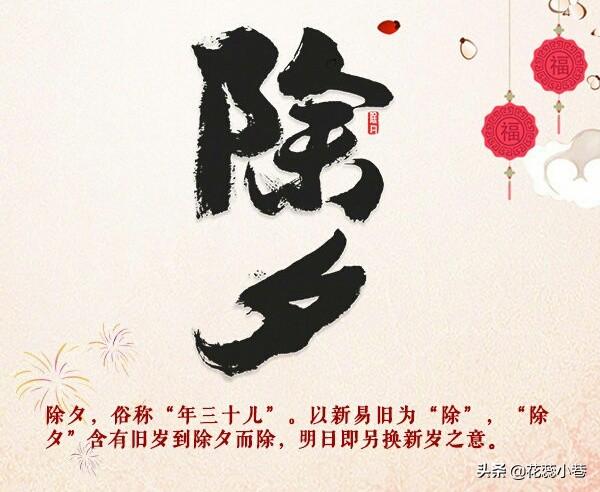 除夕
福
福
除夕
除夕，俗称“年三十儿”。以新易旧为“除”，“除
夕”含有旧岁到除夕而除，明日即另换新岁之意。
头条 @花蕊小巷